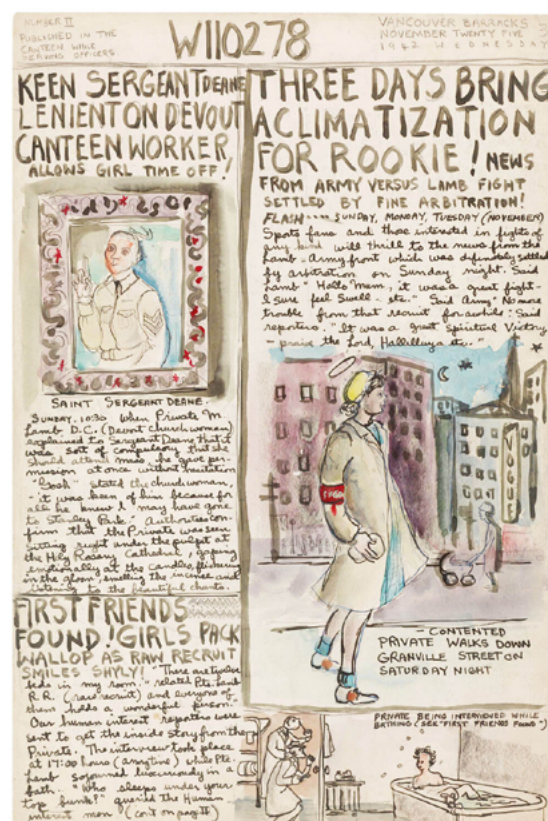 NUMBER II
PUBLISHED IN THE
CANTEEN WHILE
SERVING OFFICERS
W110278
VANCOUVER BARRACKS
NOVEMBER TWENTY FIVE
1942 WEDNESDAY
KEEN SERGEANT DEANE
LENIENT ON DEVOUT
CANTEEN WORKER
ALLOWS GIRL TIME OFF!
SAINT SERGEANT DEANE.
SUNDAY. 10:30 When Private M.
Lamb D.C. (Devout churchwoman)
explained to Sergeant Deane that it
was sort of compulsory that she
should attend mass, he gave per-
mission at once without hesitation
"Gosh" stated the churchwoman
- "it was keen of him because for
all he knew I may have gone
to Stanley Park". Authorities con-
firm that the Private was seen
sitting right under the pulpit at
the Holy Rosary Cathedral, gaping
emotionally at the candles, flickering
in the gloom, smelling the incense and
listening to the beautiful chants.
FIRST FRIENDS
FOUND! GIRLS PACK
WALLOP AS RAW RECRUIT
SMILES SHYLY! "There are twelve
beds in my room." related Pte. Lamb
R.R. (raw recruit) and everyone of
them holds a wonderful person.
Our human interest reporters were
sent to get the inside story from the
Private. The interview took place
at 17:00 hours (anytime) while Pte.
Lamb sojourned luxuriously in a
bath. "Who sleeps under your
top bunk?" queried the Human
interest men (cont on page II)
THREE DAYS BRING
ACLIMATIZATION
FOR ROOKIE! NEWS
FROM ARMY VERSUS LAMB FIGHT
SETTLED BY FINE ARBITRATION!
FLASH.... SUNDAY, MONDAY, TUESDAY (NOVEMBER)
Sports fans and those interested in fights of
any kind will thrill to the news from the
Lamb - Army front which was definately settled
by arbitration on Sunday night. Said
Lamb "Hallo Mam, it was a great fight -
I sure feel swell. etc." Said Army "No more
trouble from that recruit for awhile" Said
reporters. "It was a great Spiritual Victory
- praise the Lord, Hallelluya etc.."
VOGUE
- CONTENTED
PRIVATE WALKS DOWN
GRANVILLE STREET ON
SATURDAY NIGHT
PRIVATE BEING INTERVIEWED WHILE
BATHING (SEE "FIRST FRIENDS FOUND")